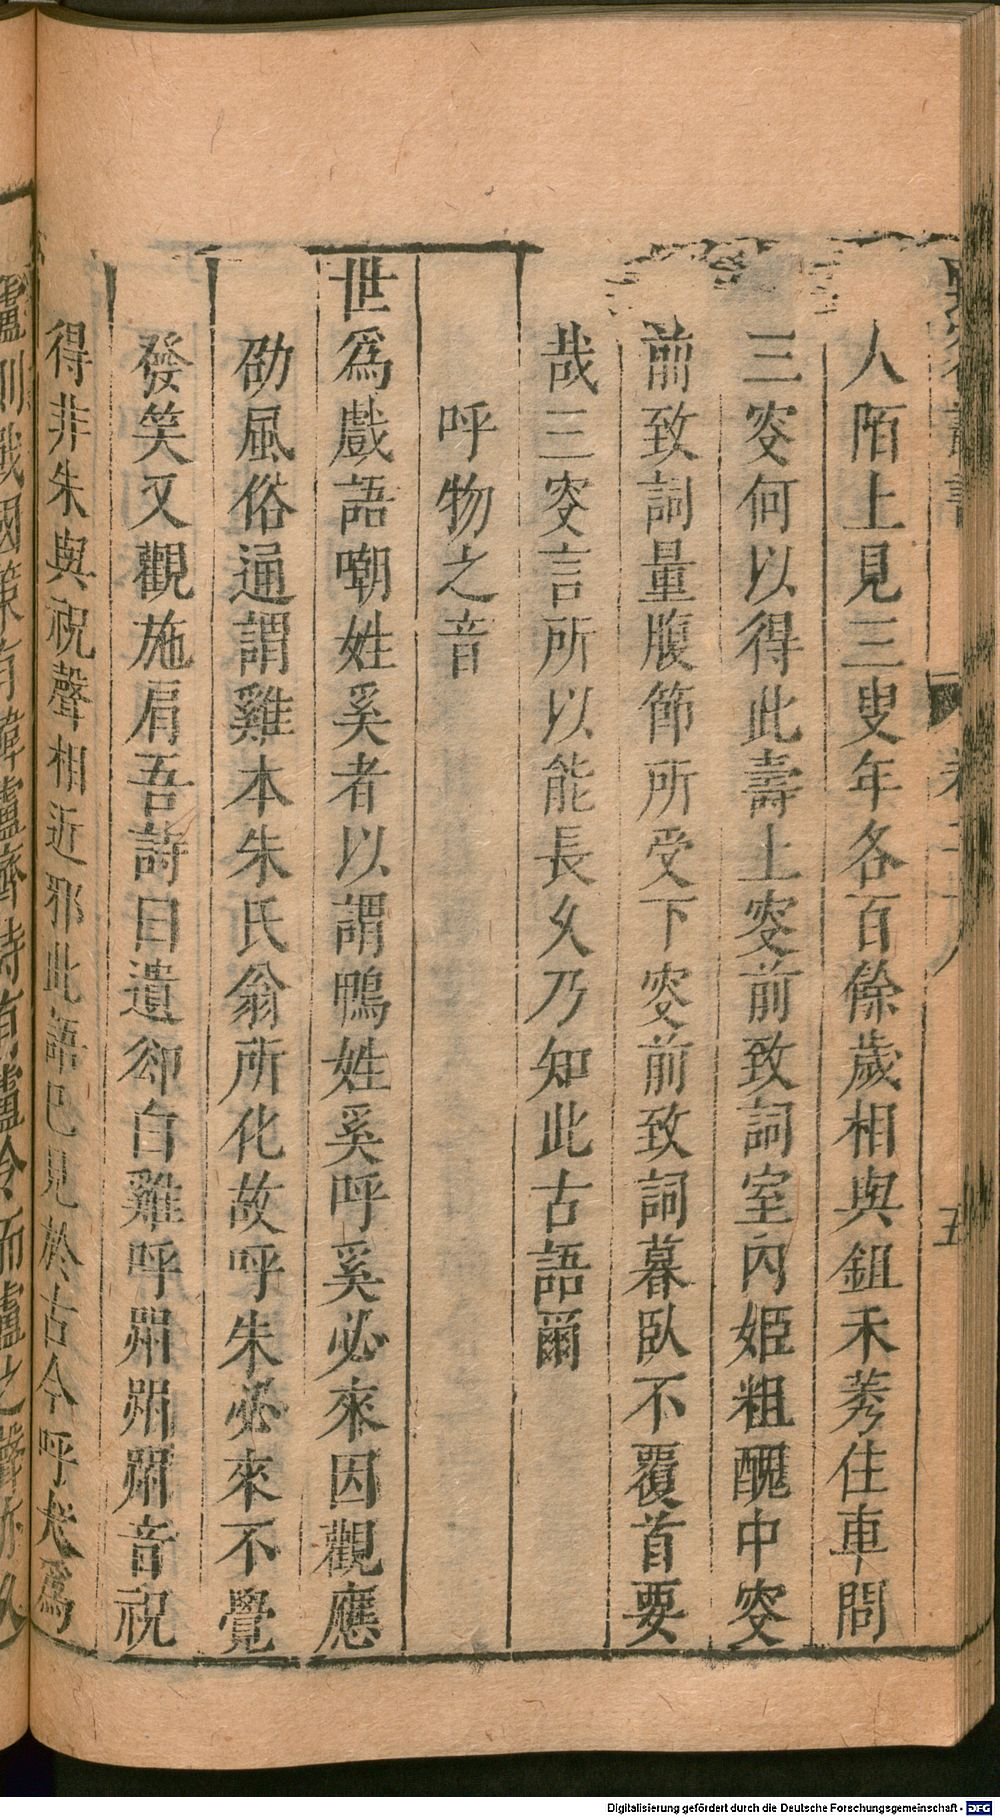 人陌上見三叟年各百餘歲相與鉏禾莠住車問
三叟何以得此壽上叟前致詞室內姬粗醜中叟
前致詞量腹節所受下叟前致詞暮臥不覆首要
哉三叟言所以能長久乃知此古語爾
呼物之音
世爲戲語嘲姓奚者以謂鴨姓奚呼奚必來因觀應
劭風俗通謂雞本朱氏翁所化故呼朱必來不覺
發笑又觀施肩吾詩曰遺卻白雞呼喌喌喌音祝
得非朱與祝聲相近邪此語巳見於古今呼犬爲
盧則戰國策有韓盧齊詩有盧令而盧之聲亦
Digitalisierung gefördert durch die Deutsche Forschungsgemeinschaft - DFG